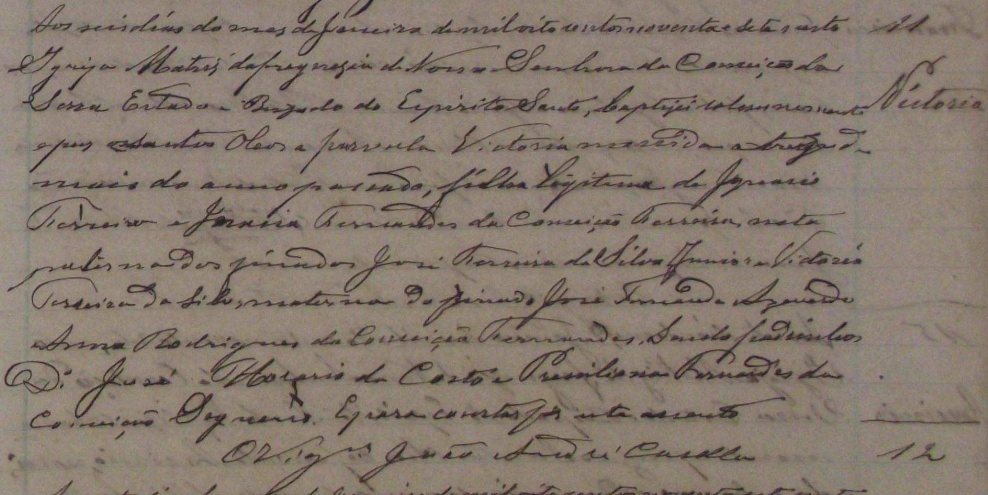 Aos seis dias do mes de Janeiro de mil oito centos noventa e sete nesta
11
Igreja Matris da freguezia de Nossa Senhora da Conceição da
Serra Estado e Bispado do Espirito Santo, baptizei solemnemente
Victoria
e pus santos Oleos a parvula Victoria nascida a treze de
maio do anno passado, filha legitima de Ignacio
Ferreira e Ignacia Fernandes da Conceição Ferreira, neta
paterna dos finados José Ferreira da Silva Junior e Victoria
Ferreira da Silva, materna do finado José Fernandes Azevedo
e Anna Rodrigues da Conceição Fernandes. Sendo padrinhos
José Horacio da Costa e Presiliana Fernandes da
Conceição E para constar fiz este assento
O Vigr.º João André Casella
12